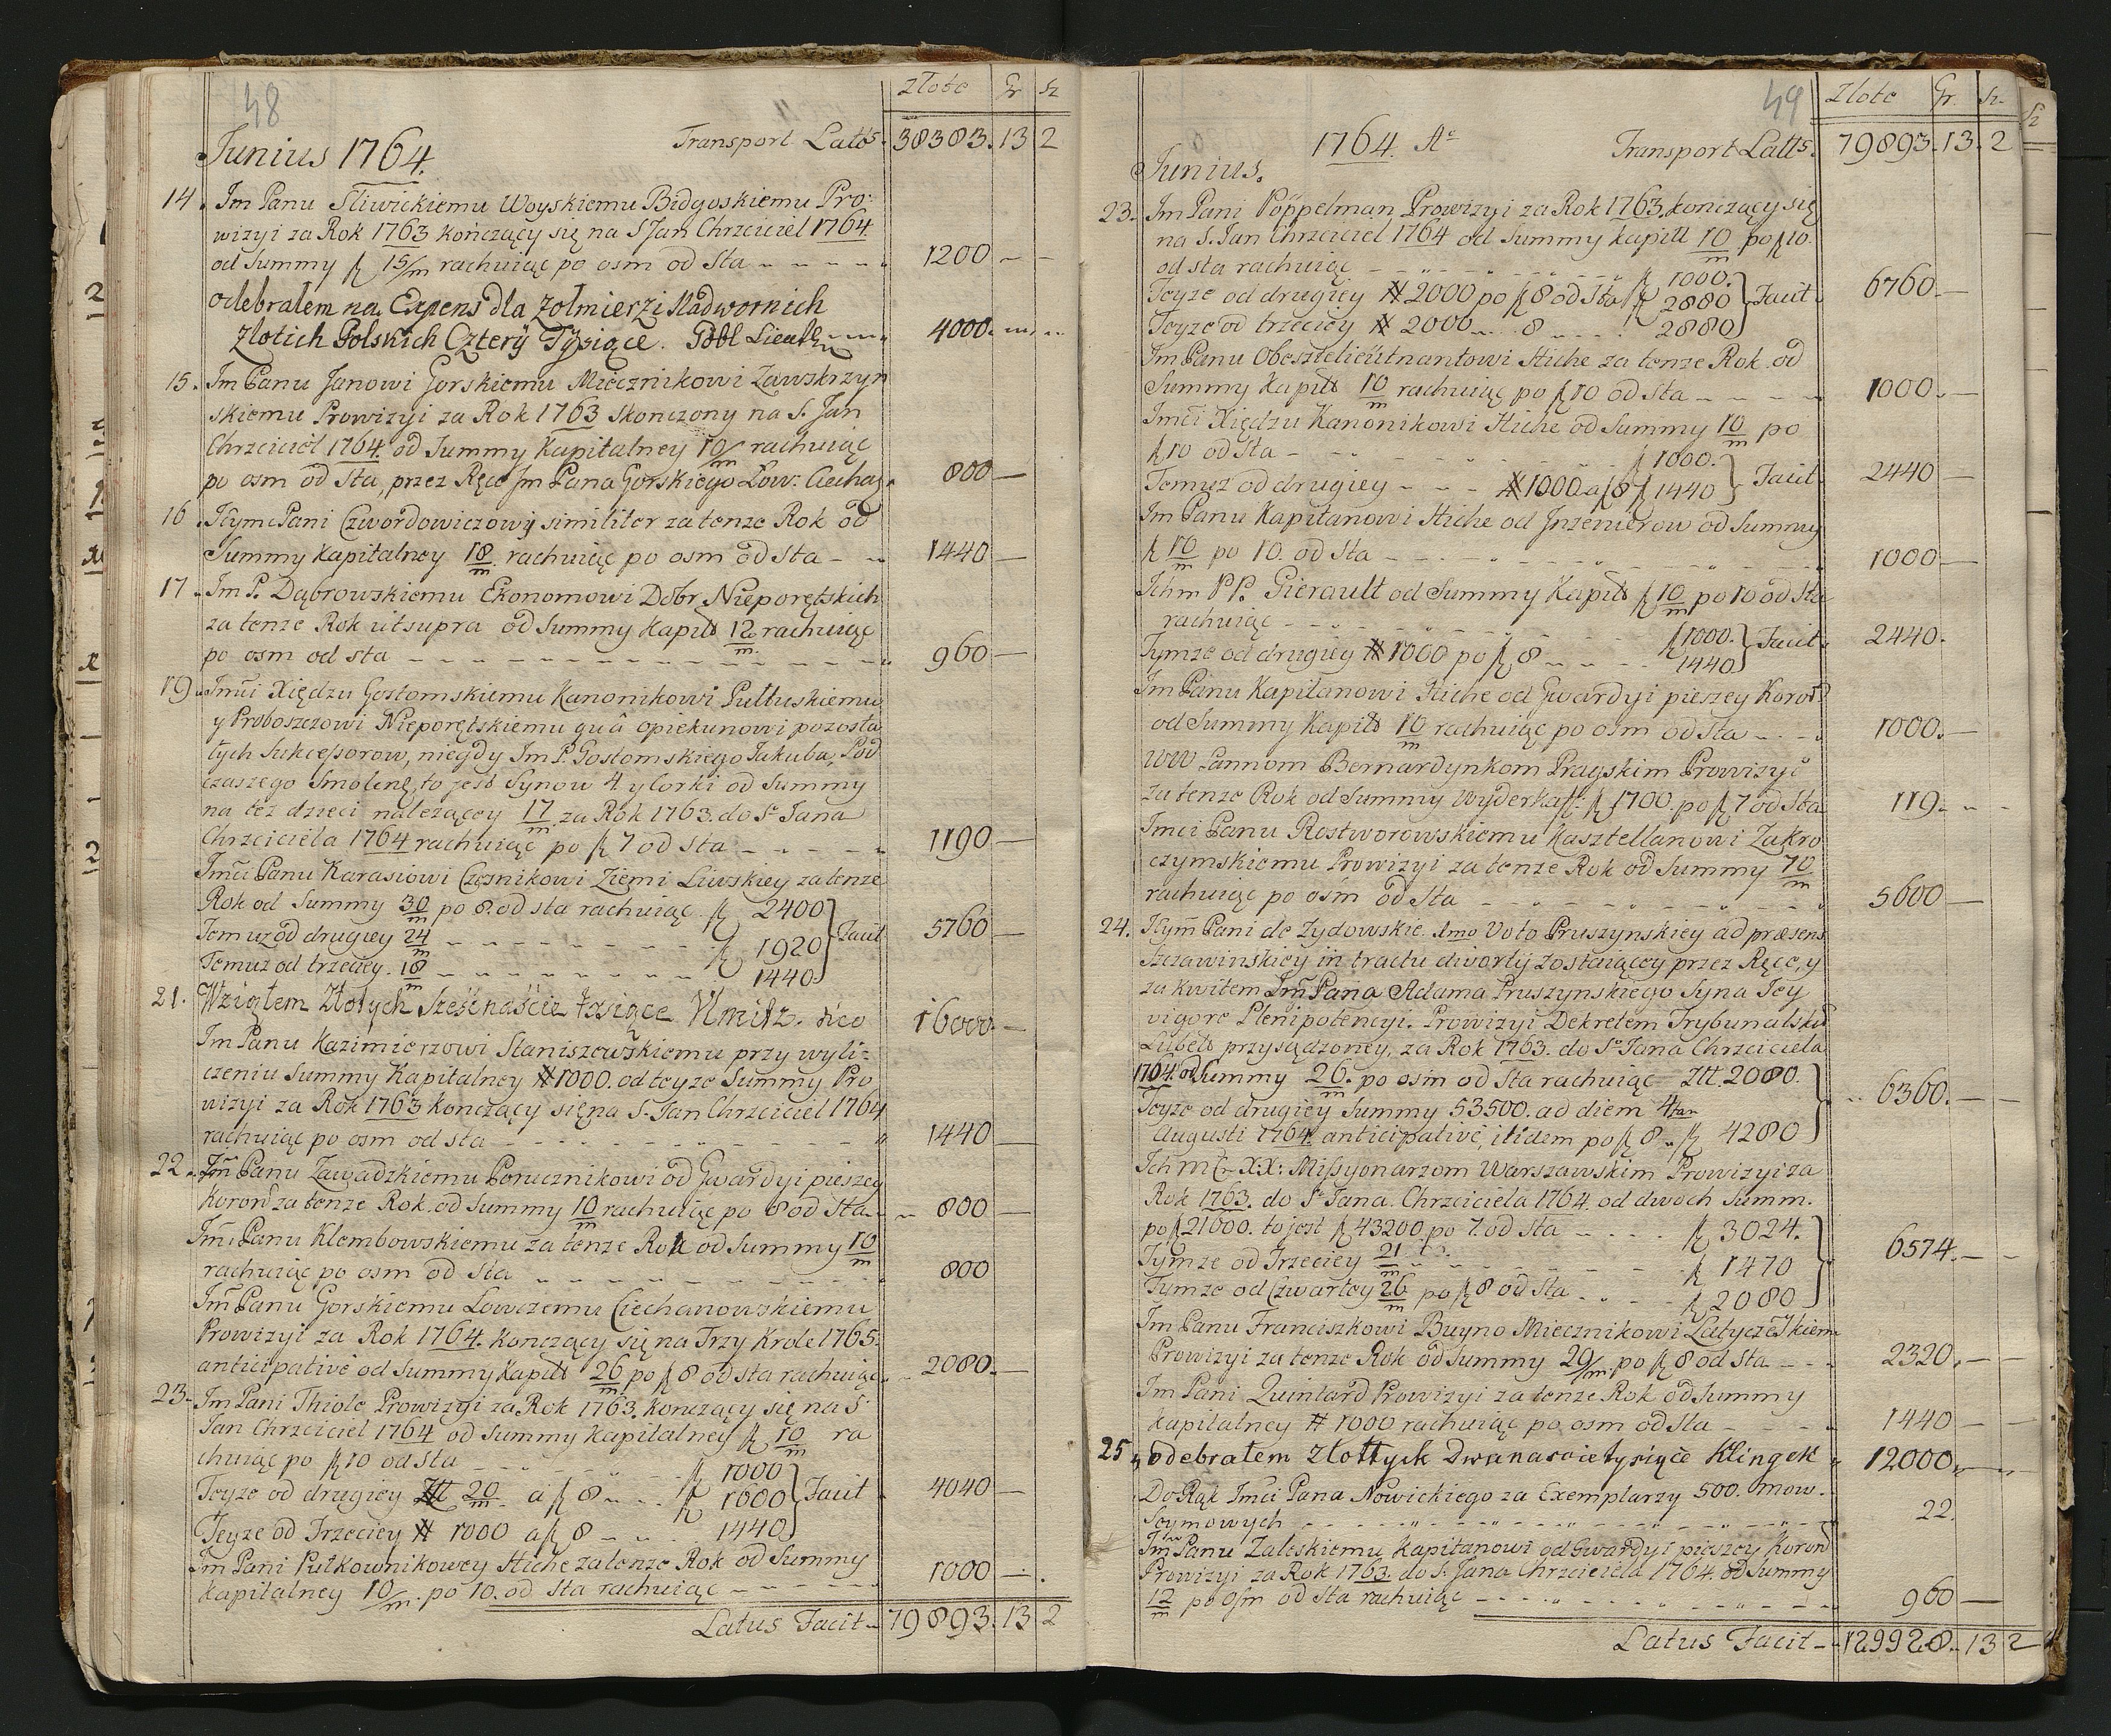 48
Złote Gr Sz
Junius 1764. Transport Lat9 38383. 13 2
14. Jm Panu Sliwickiemu Woyskiemu Bidgoskiemu Pro-
wizyi za Rok 1763 kończący się na S Jan Chrzciciel 1764
od Summy 15/m rachuiąc po osm od Sta 1200 —
odebrałem na Expens dla Zołmierzi Nadwornich
Zlotich Polskich Cztery Tysiące. 4000.
15. Jm Panu Janowi Gorskiemu Miecznikowi Zawskrzyn
skiemu Prowizyi za Rok 1763 skonczony na S. Jan
Chrzciciel 1764 od Summy Kapitalney 10/m rachuiąc
po osm od Sta, przez Ręce Jm Pana Gorskiego Łow: Ciechaʒ. 800 —
16. Jeym Pani Czwordowiczowy similiter za tenze Rok od
Summy Kapitalney 18/m rachuiąc po osm od Sta 1440 —
17. Jm P. Dąbrowskiemu Ekonomowi Dobr Nieporętskich
za tenze Rok ut supra od Summy Kapitt 12/m. rachuiąc
po osm od sta 960 —
19. Jmci Xiędzu Gostomskiemu Kanonikowi Pułtuskiemu
y Proboszczowi Nieporętskiemu quâ opiekunowi pozosta
łych Sukcessorow, niegdy Jm P. Gostomskiego Jakuba, Pod
czaszego Smolens, to jest Synow 4 y Corki od Summy
na też dzieci nalezącey 17/m za Rok 1763. do St Jana
Chrzciciela 1764 rachuiąc po 7 od Sta 1190 —
Jmci Panu Karasiowi Czesnikowi Ziemi Liwskiey za tenze
Rok od Summy 30/m po 8. od sta rachuiąc 2400
Temuz od drugiey 24/m 1920 } Facit 5760 —
Temuz od trzeciey 18/m 1440
21. Wziąłem Złotych Sześćnaście tysiące 16000. —
Jm Panu Kazimierzowi Staniszewskiemu przy wyli-
czeniu Summy Kapitalney # 1000. od teyze Summy Pro
wizyi za Rok 1763 konczący się na S. Jan Chrzciciel 1764
rachuiąc po osm od sta 1440 —
22. Jm Panu Zawadzkiemu Porucznikowi od Gwardyi pieszey
Koron za tenze Rok. od Summy 10/m rachuiąc po 8 od Sta 800 —
Jm Panu Klembowskiemu za tenze Rok od Summy 10/m
rachuiąc po osm od Sta 800
Jm Panu Gorskiemu Łowczemu Ciechanowskiemu
Prowizyi za Rok 1764. konczący się na Trzy Krole 1765.
anticipativè od Summy Kapitt 26/m po 8 od sta rachuiąc 2080. —
23. Jm Pani Thiole Prowizyi za Rok 1763. konczący się na S
Jan Chrzciciel 1764 od Summy Kapitalney 10/m ra
chuiąc po 10 od Sta 1000
Teyze od drugiey 20/m a 8 1000 } Facit 4040 —
Teyze od Trzeciey # 1000 a 8 1440
Jm Pani Pułkownikowey Hiche za tenze Rok od Summy
Kapitalney 10/m. po 10. od Sta rachuiąc 1000 —
Latus Facit 79893. 13 2
49
Złote Gr. Sz.
1764. Ao Transport Latt9. 79893. 13. 2
Junius.
23. Jm Pani Pöppelman Prowizyi za Rok 1763. kończący się
na S. Jan Chrzciciel 1764 od Summy Kapitt 10/m po 10.
od sta rachuiąc 1000.
Teyze od drugiey # 2000 po 8 od Sta 2880 } Facit 6760 —
Teyze od trzeciey # 2000 8 2880
Jm Panu Obesztelieutnantowi Hiche za tenze Rok od
Summy Kapitt 10/m rachuiąc po 10 od Sta 1000. —
Jmci Xiędzu Kanonikowi Hiche od Summy 10/m po
10 od Sta 1000.
Temuz od drugiey # 1000 a 8 1440 } Facit 2440 —
Jm Panu Kapitanowi Hiche od Jnzenierow od Summy
10/m po 10. od Sta 1000 —
Jchm PP. Gierault od Summy Kapitt 10/m po 10 od Sta
rachuiąc 1000.
Tymze od drugiey # 1000 po 8 1440 } Facit 2440.
Jm Panu Kapitanowi Hiche od Gwardyi pieszey Koron
od Summy Kapitt 10/m rachuiąc po osm od Sta 1000. —
WW Pannom Bernardynkom Pragskim Prowizyi
za tenze Rok od Summy Wyderkaff: 1700. po 7 od Sta 119.
Jmci Panu Rostworowskiemu Kasztellanowi Zakro
czymskiemu Prowizyi za tenze Rok od Summy 70/m
rachuiąc po osm od Sta 5600 —
24. Jeym Pani de Zydowskie 1mo Voto Pruszynskiey ad præsens
Szczawinskiey in tractu divortÿ zostaiącey przez Ręce, y
za Kwitem Jm Pana Adama Pruszynskiego Syna Jey
vigore Plenipotencyi. Prowizyi Dekretem Trybunalsku
Lubels przysądzoney, za Rok 1763. do St Jana Chrzciciela
1764. od Summy 26/m. po osm od Sta rachuiąc Ztt. 2080.
Teyze od drugiey Summy 53500. ad diem 4tam } 6360. —
Augusti 1764. anticipativè, itidem po 8 4280
Jchmć XX: Missyonarzom Warszawskim Prowizyi za
Rok 1763. do St Jana Chrzciciela 1764. od dwoch Summ.
po 21600. to jest 43200 po 7. od Sta 3024.
Tymze od Trzeciey 21/m 1470 } 6574. —
Tymze od Czwartey 26/m po 8 od Sta 2080
Jm Panu Franciszkowi Buyno Miecznikowi Latyczewskiem
Prowizyi za tenze Rok od Summy 29/m. po 8 od Sta 2320. —
Jm Pani Quintard Prowizyi za tenze Rok od Summy
Kapitalney # 1000 rachuiąc po osm od Sta 1440 —
25. odebrałem złottych Dwanascie tysięce Klingek 12000.
Do Rąk Jmci Pana Nowickiego za Exemplarzy 500. mow.
Seymowych 22.
Jm Panu Zaleskiemu Kapitanowi od Gwardyi pieszey Koron
Prowizyi za Rok 1763. do S. Jana Chrzciciela 1764. od Summy
12/m po osm od Sta rachuiąc 960 —
Latus Facit 129928. 13 2